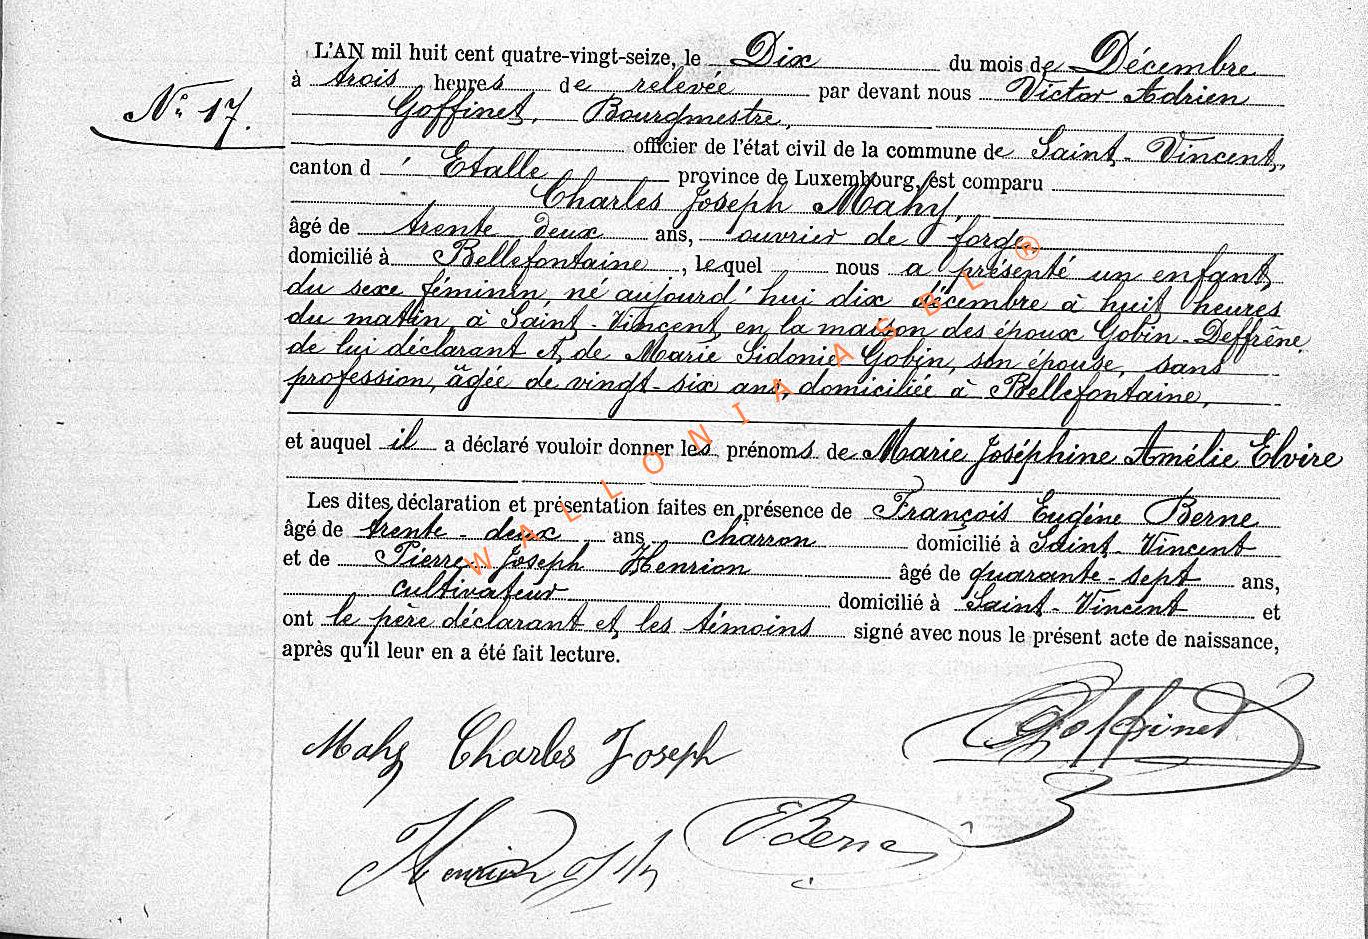 L'AN mil huit cent quatre-vingt-seize, le Dix du mois de Décembre
à trois heures de relevée par devant nous Victor Adrien
N° 17.
Goffinet, Bourgmestre,
officier de l'état civil de la commune de Saint-Vincent,
canton d'Etalle province de Luxembourg, est comparu
Charles Joseph Mahy,
âgé de trente deux ans, ouvrier de forge
domicilié à Bellefontaine, lequel nous a présenté un enfant
du sexe féminin, né aujourd'hui dix décembre à huit heures
du matin, à Saint-Vincent en la maison des époux Gobin-Deffrêne
de lui déclarant et de Marie Sidonie Gobin, son épouse, sans
profession, âgée de vingt-six ans, domiciliée à Bellefontaine,
et auquel il a déclaré vouloir donner les prénoms de Marie Joséphine Amélie Elvire
Les dites déclaration et présentation faites en présence de François Eugène Berne
âgé de trente-deux ans charron domicilié à Saint-Vincent
et de Pierre Joseph Henrion âgé de quarante-sept ans,
cultivateur domicilié à Saint-Vincent et
ont le père déclarant et les témoins signé avec nous le présent acte de naissance,
après qu'il leur en a été fait lecture.
WALLONIA ASBL ®
Goffinet
Mahy Charles Joseph
E Berne
Henrion